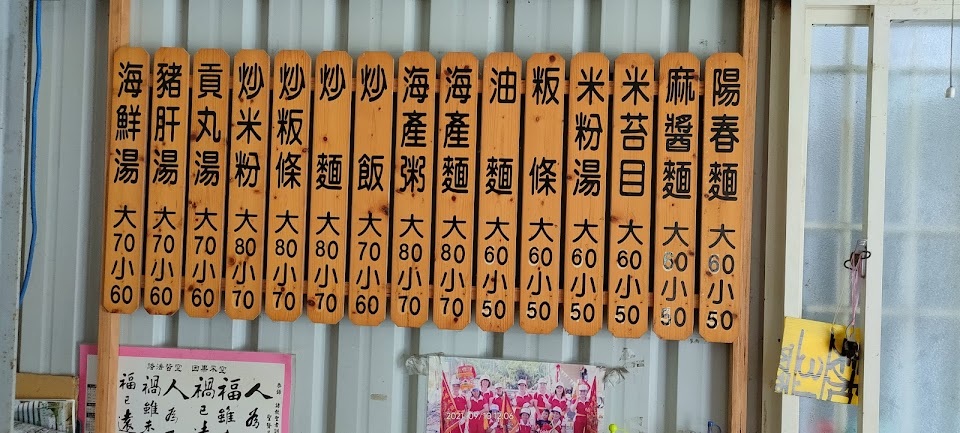 陽春麵 大60 小50
麻醬麵 大60 小50
米苔目 大60 小50
米粉湯 大60 小50
粄條 大60 小50
油麵 大60 小50
海產麵 大80 小70
海產粥 大80 小70
炒飯 大70 小60
炒麵 大80 小70
炒粄條 大80 小70
炒米粉 大80 小70
貢丸湯 大70 小60
豬肝湯 大70 小60
海鮮湯 大70 小60
人為
福雖
禍已
人為
禍雖未
福已遠